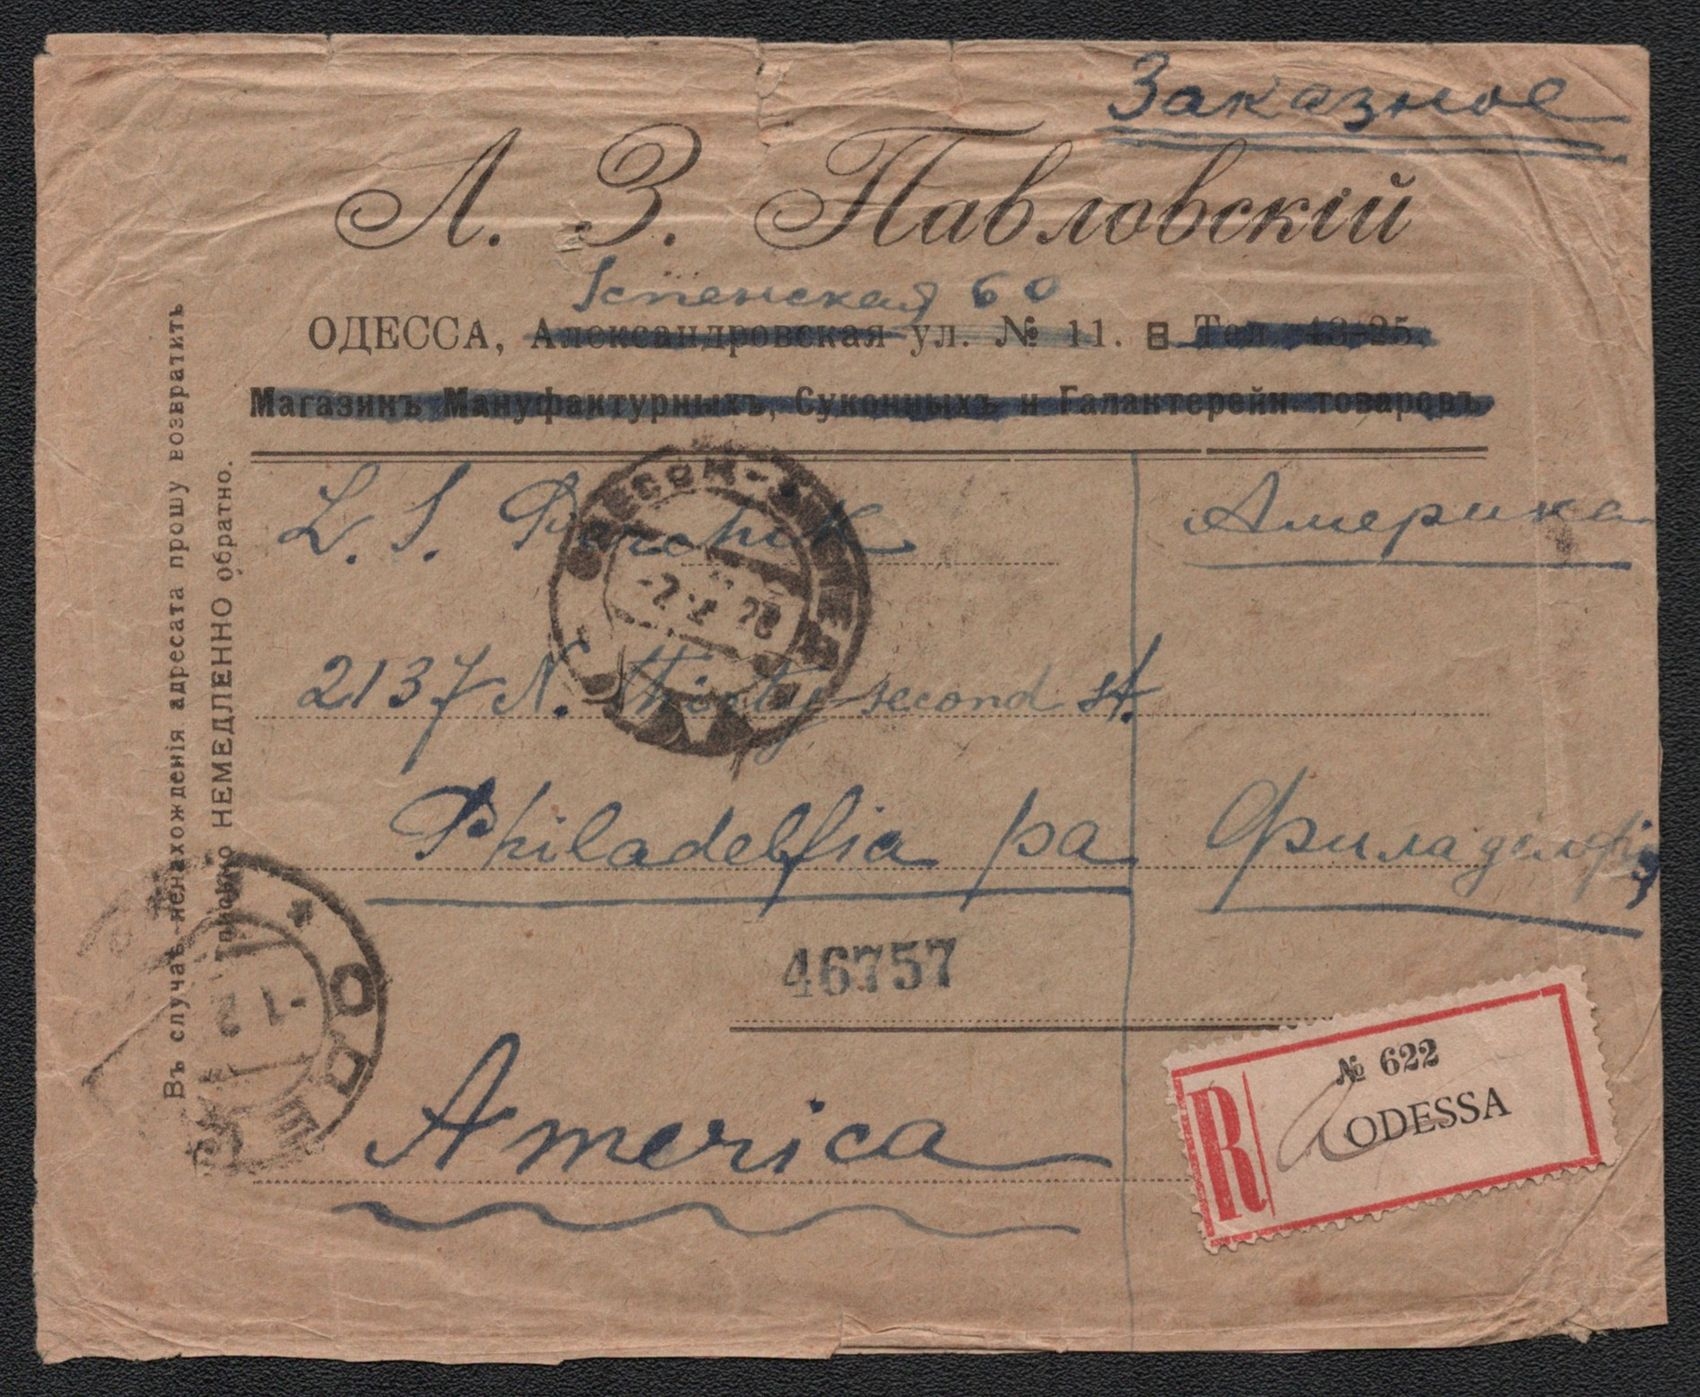 Заказное
Л. З. Павловскій
Успенская 60
ОДЕССА, Александровская ул. № 11. Тел. 13-25.
Магазинъ Мануфактурныхъ, Суконныхъ и Галантерейн. товаровъ
Въ случаѣ ненахожденія адресата прошу возвратить
НЕМЕДЛЕННО обратно.
L. S.
Америка
2137 N. Thirty second st.
Philadelfia pa
Филаделфія
46757
America
R
№ 622
ODESSA